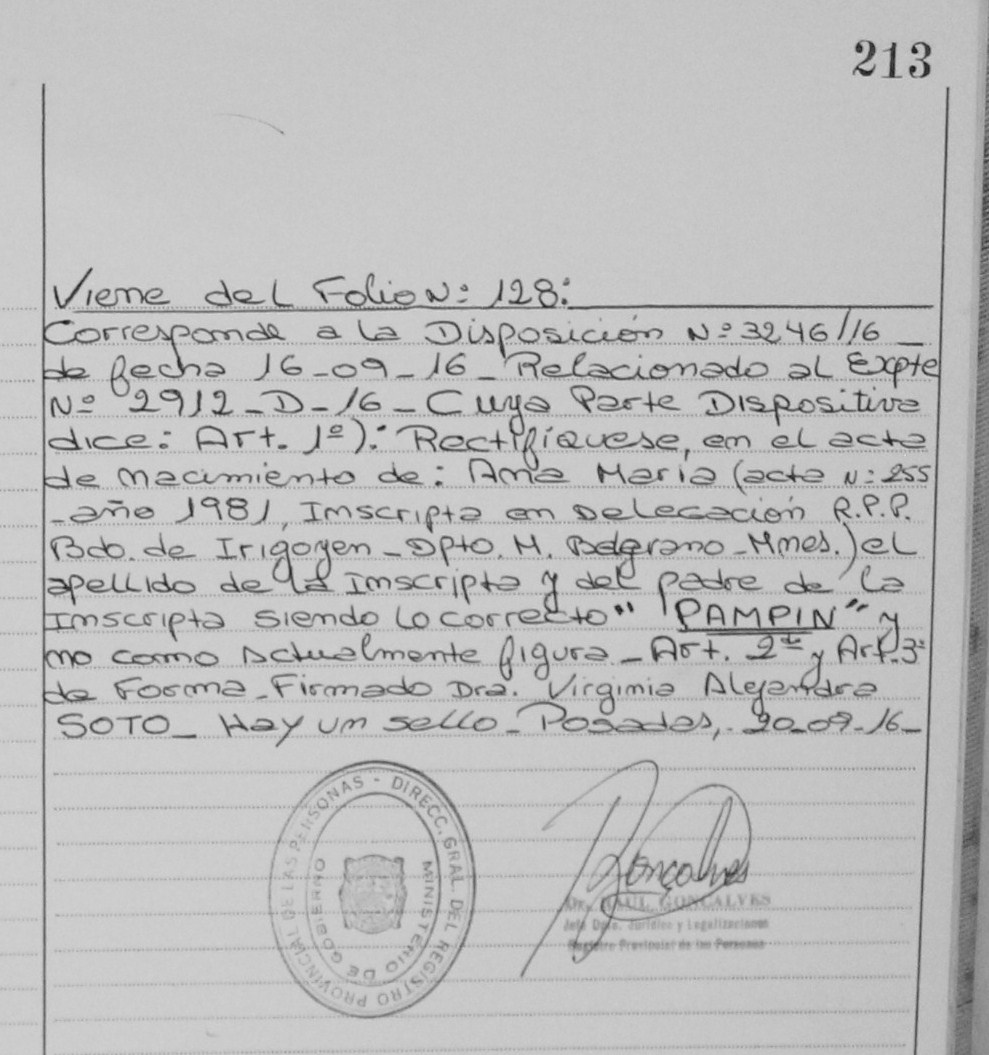 213
Viene del Folio Nº 128:
Corresponde a la Disposición Nº 3246/16 _
de fecha 16-09-16_ Relacionado al Expte
Nº 2912-D-16_ Cuya Parte Dispositiva
dice: Art. 1º): Rectifíquese, en el acta
de nacimiento de: Ana María (acta Nº 255
_año 1981, Inscripta en Delegación R.P.P.
Bdo. de Irigoyen_Dpto. M. Belgrano_Mnes.) el
apellido de la Inscripta y del padre de la
Inscripta siendo lo correcto " "PAMPIN" y
no como Actualmente figura_Art. 2º y Art. 3º
de Forma_Firmado Dra. Virginia Alejandra
SOTO_ Hay un sello_ Posadas, 20-09-16_
DIRECC. GRAL. DEL REGISTRO PROVINCIAL DE LAS PERSONAS -
MINISTERIO DE GOBIERNO
Gonçalves
Dr. RAUL GONCALVES
Jefe Dpto. Jurídico y Legalizaciones
Registro Provincial de las Personas